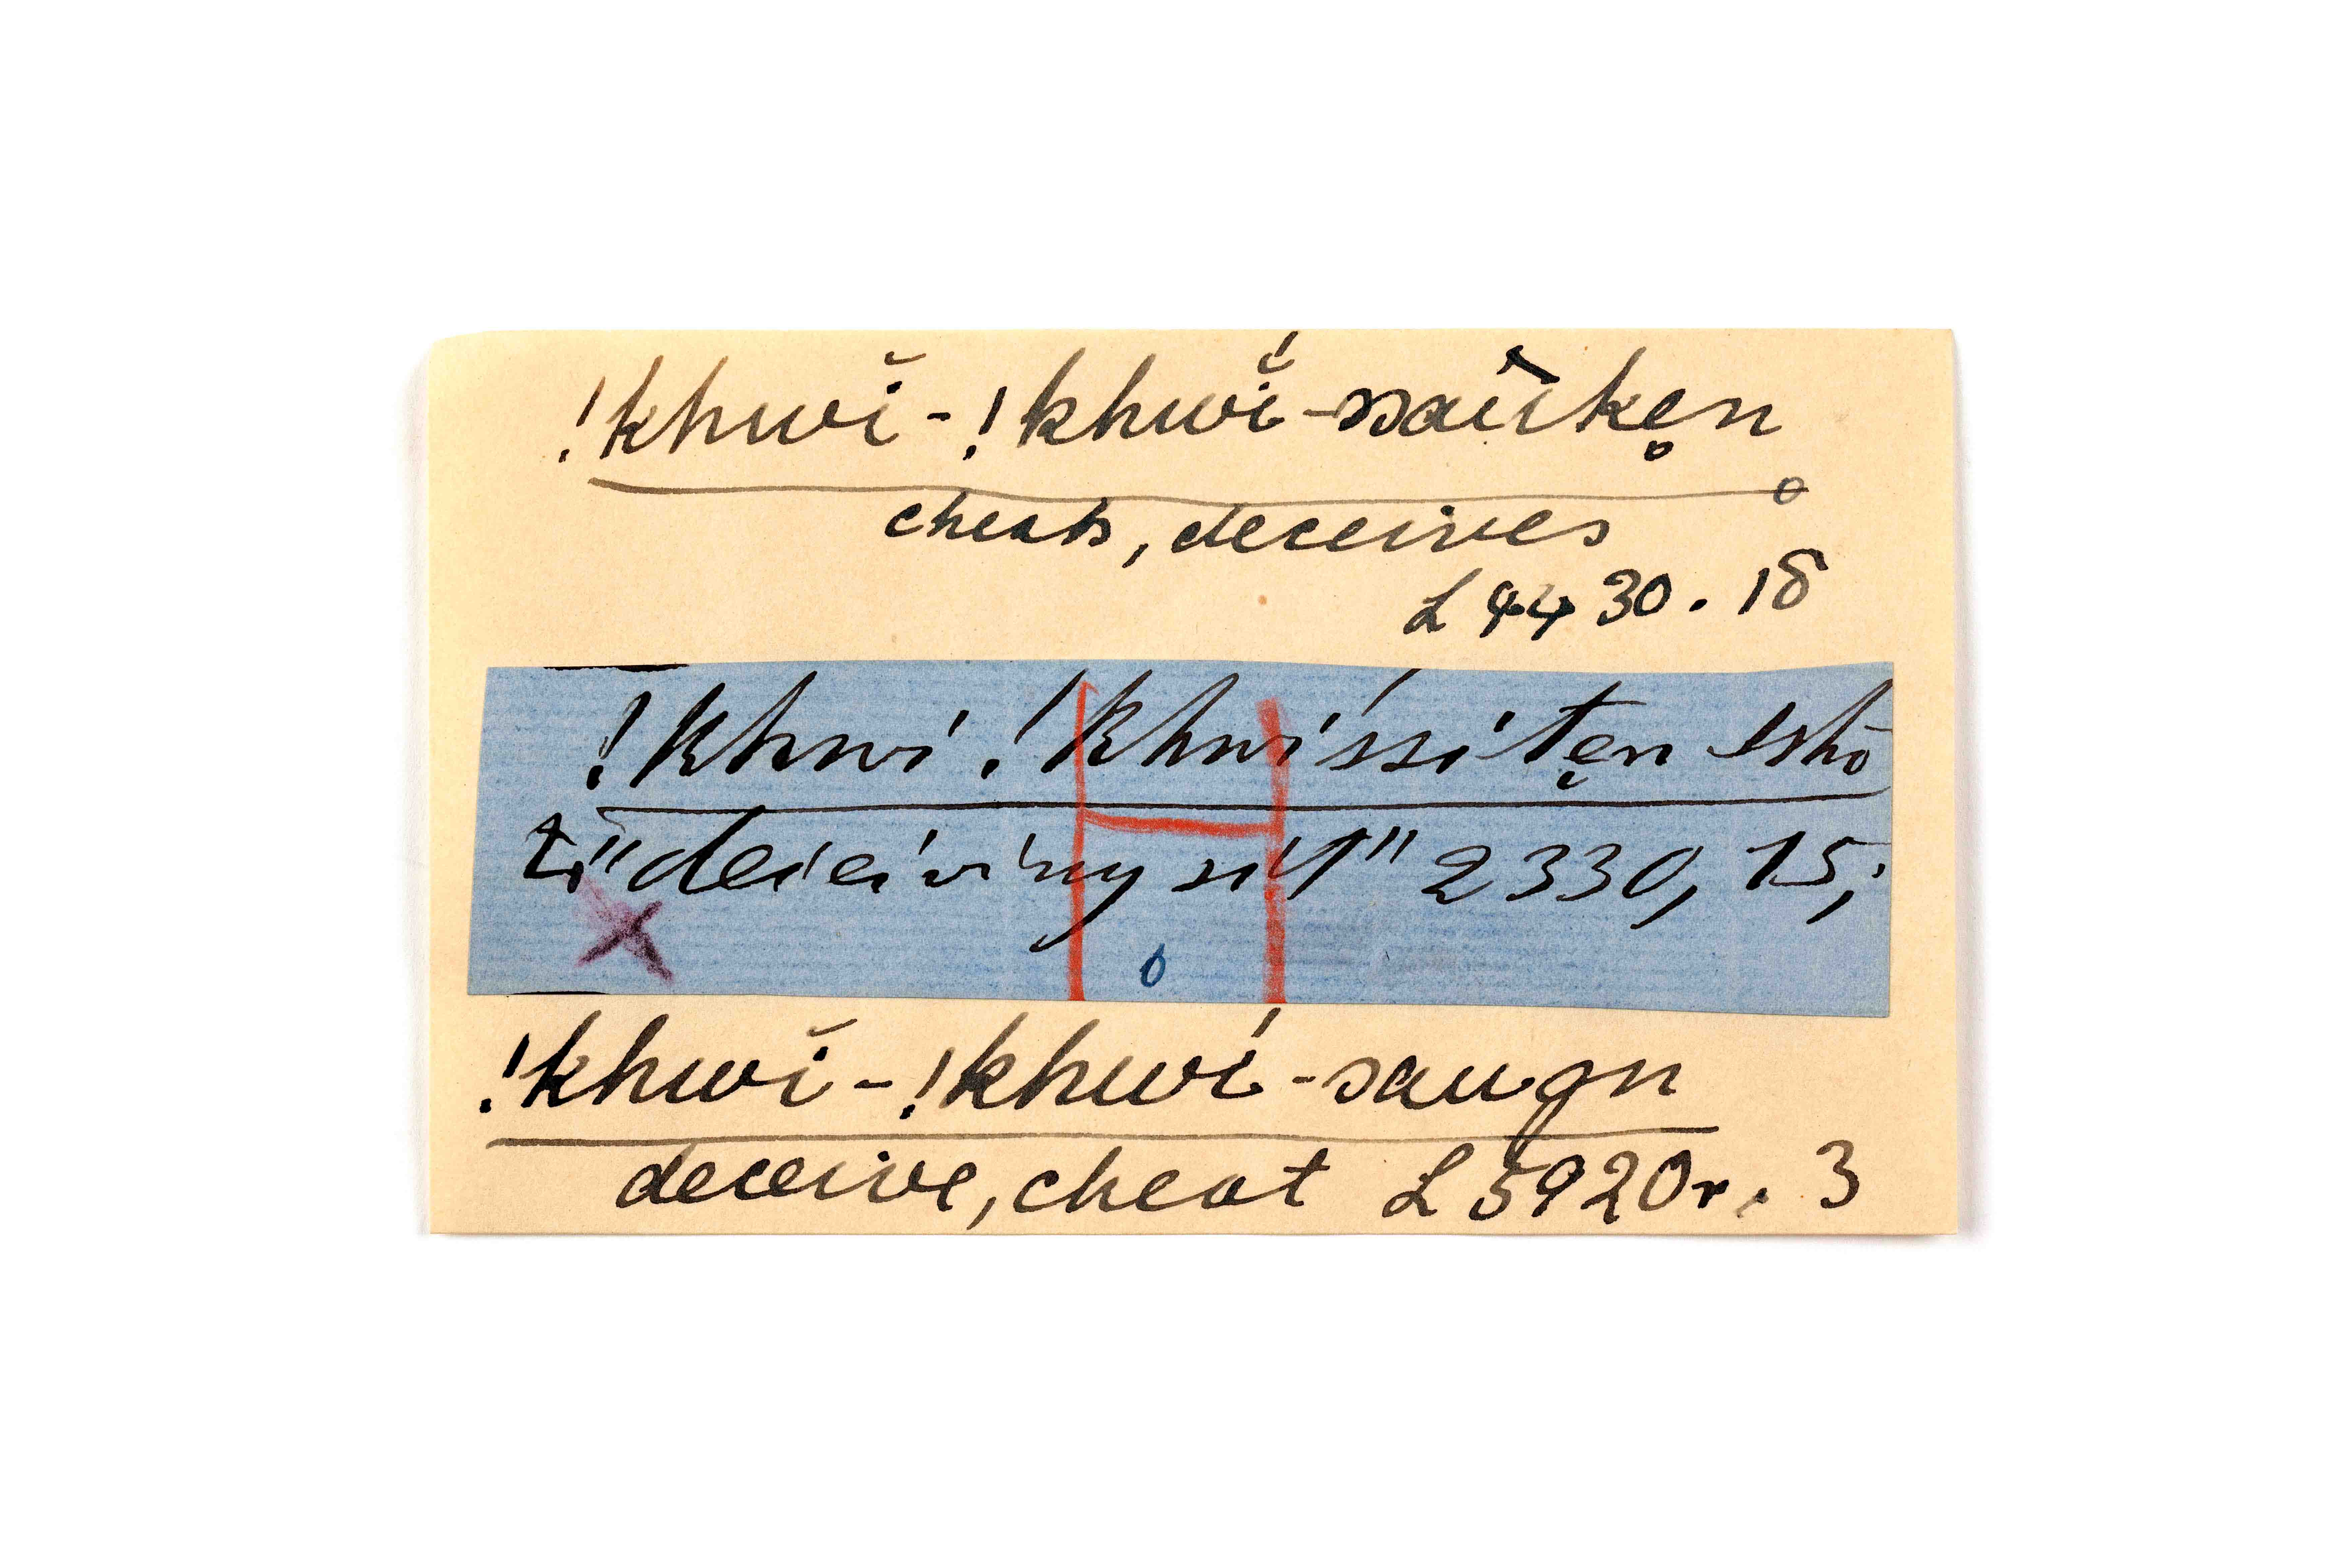 !khwĭ-!khwĭ́-ssaû̯ke̥n
cheats, deceives
L 4430. 18
!khwi !khwíssíte̥n
"deceiving sit" 2330, 15;
!khwĭ-!khwí-saugn
deceive, cheat L 5920r. 3